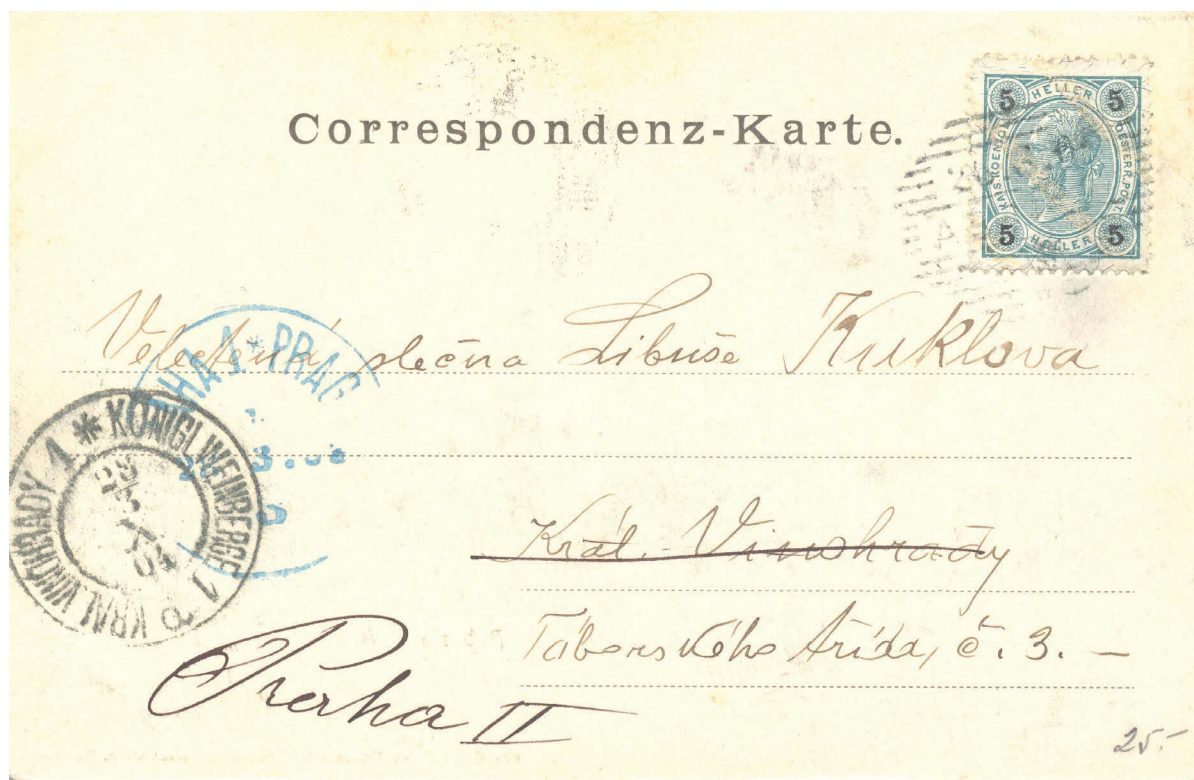 Correspondenz-Karte.
5 HELLER 5
KAIS. KOENIGL. OESTERR. POST.
5 HELLER 5
Velectěná slečna Libuše Kuklova
PRAG
* KÖNIGL. WEINBERGE 1
KRÁL. VINOHRADY 1
Král. Vinohrady
Táborského třída, č. 3. —
Praha II
25.-